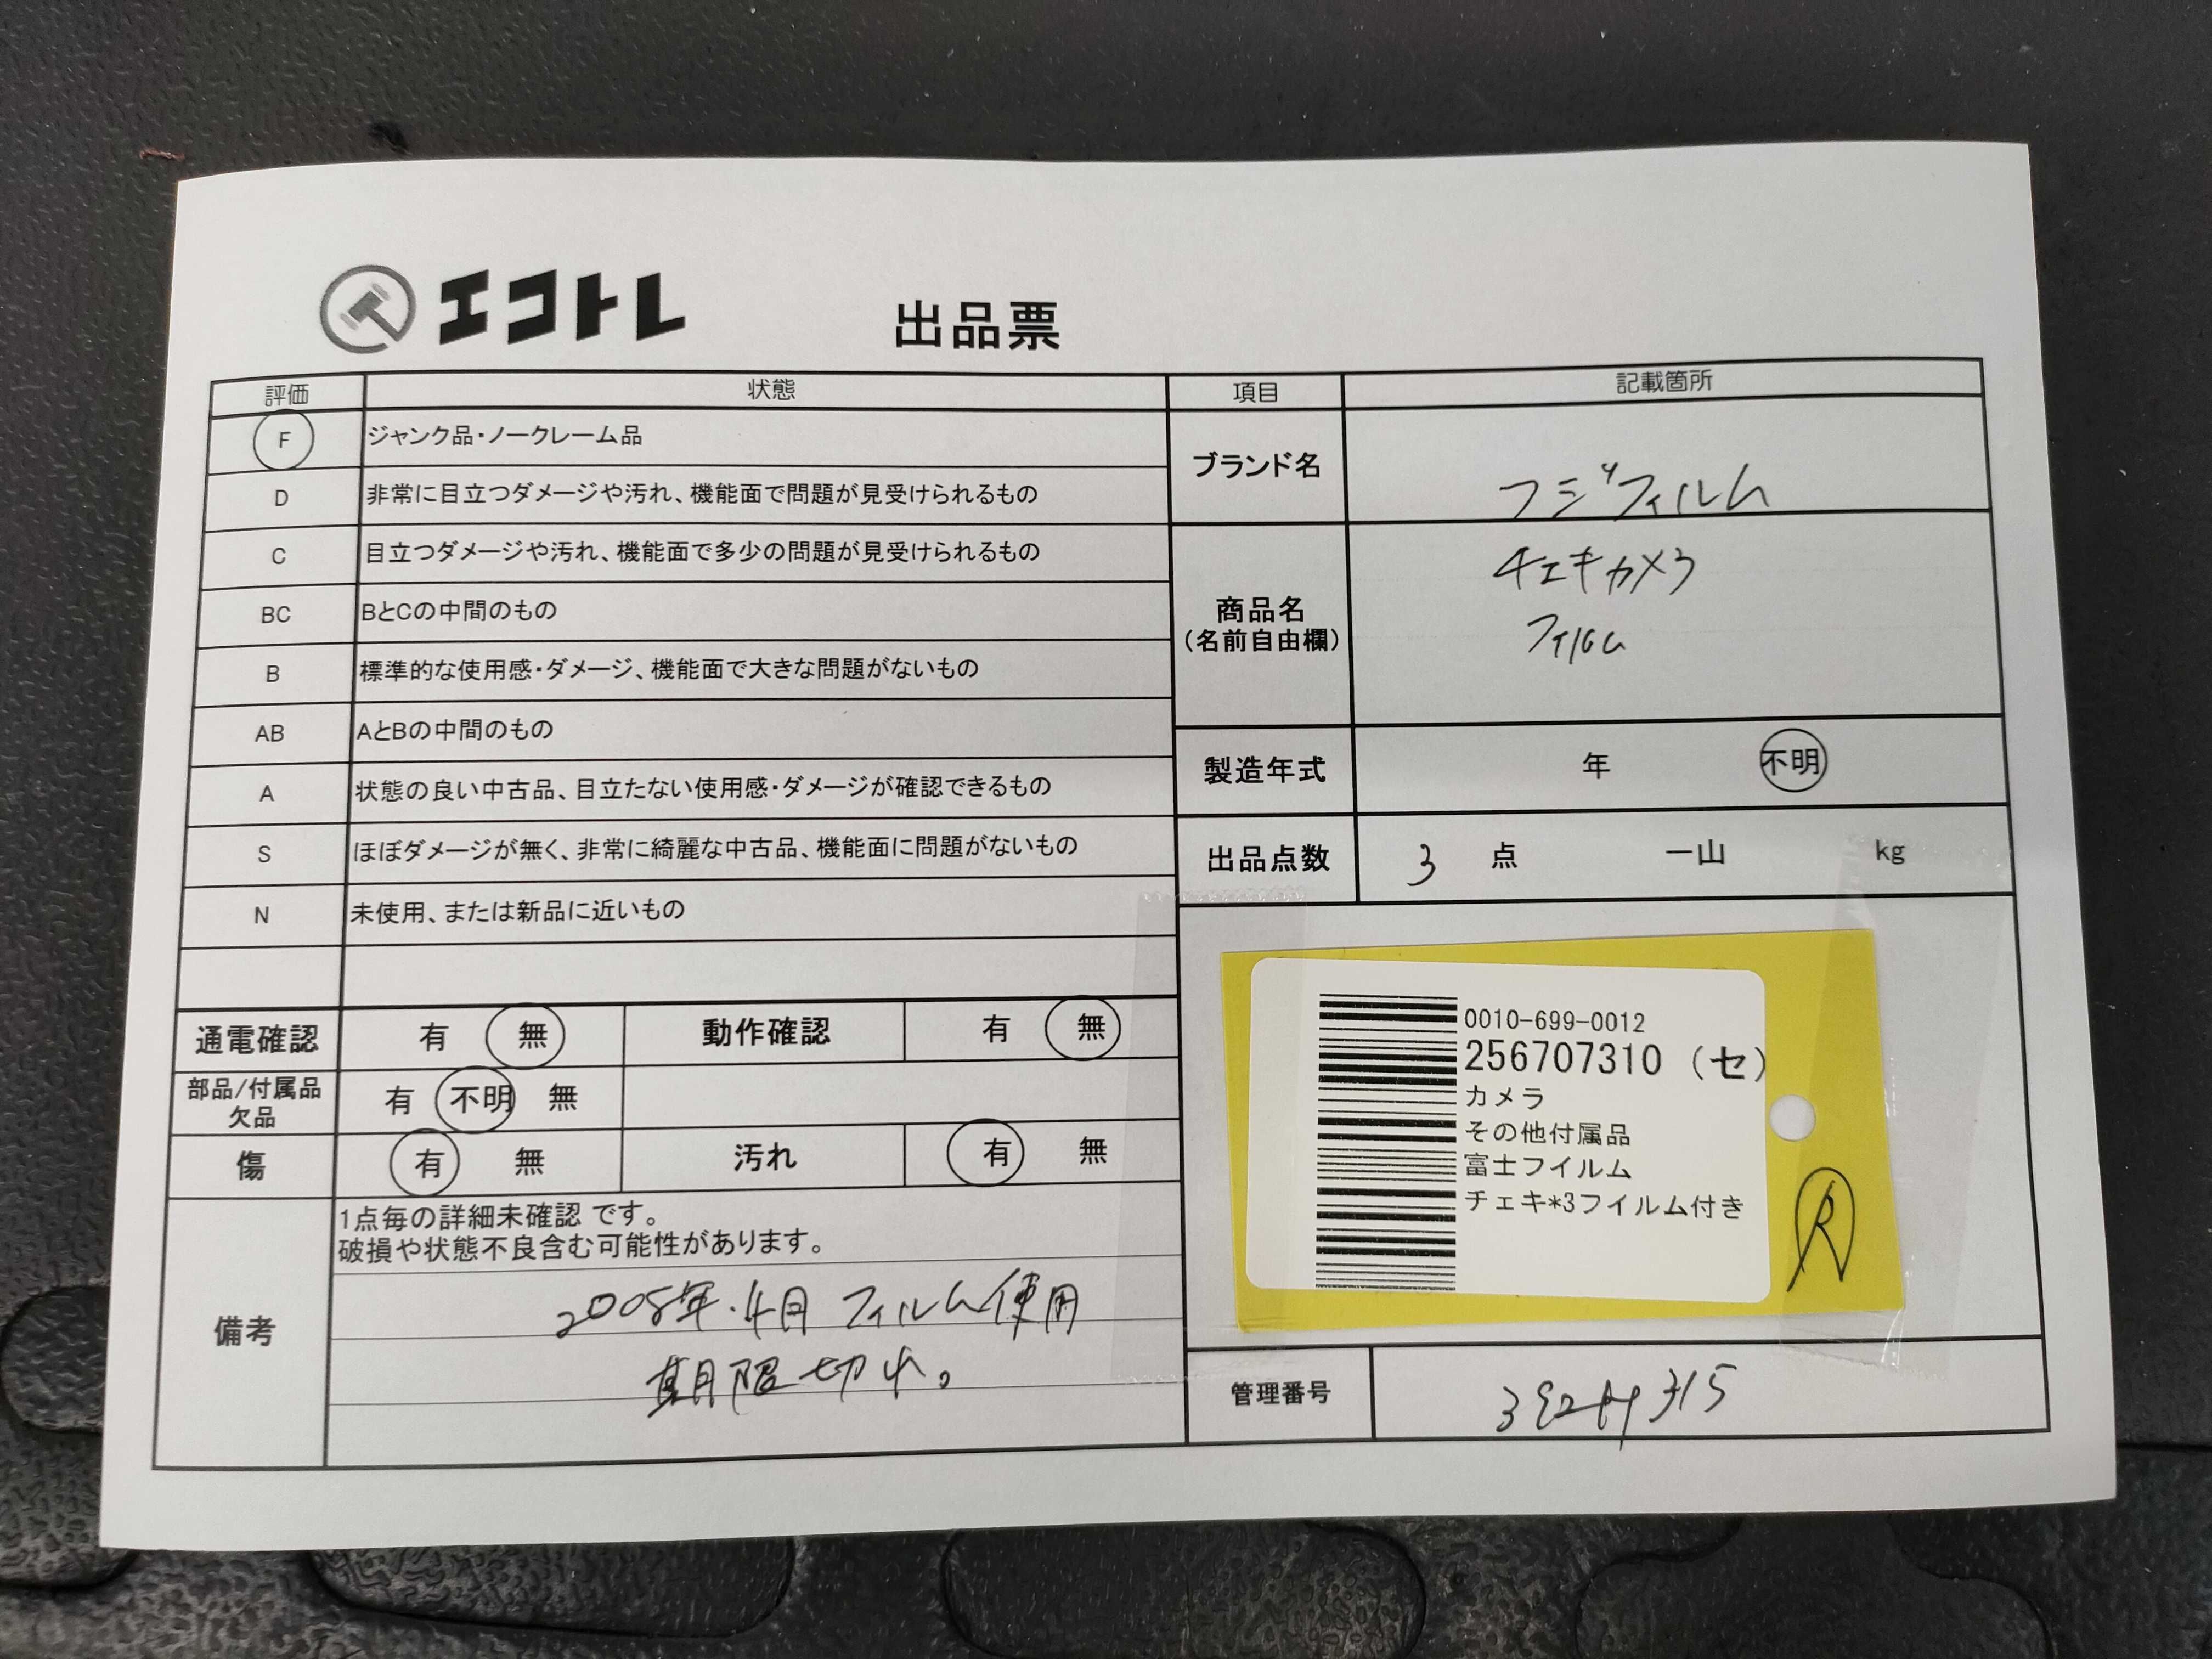 エコトレ
出品票
評価 状態
F ジャンク品・ノークレーム品
D 非常に目立つダメージや汚れ、機能面で問題が見受けられるもの
C 目立つダメージや汚れ、機能面で多少の問題が見受けられるもの
BC BとCの中間のもの
B 標準的な使用感・ダメージ、機能面で大きな問題がないもの
AB AとBの中間のもの
A 状態の良い中古品、目立たない使用感・ダメージが確認できるもの
S ほぼダメージが無く、非常に綺麗な中古品、機能面に問題がないもの
N 未使用、または新品に近いもの
通電確認 有 無 動作確認 有 無
部品/付属品
欠品
有 不明 無
傷 有 無 汚れ 有 無
備考
1点毎の詳細未確認 です。
破損や状態不良含む可能性があります。
2008年.4月 フィルム使用
期限切れ。
項目 記載箇所
ブランド名 フジフィルム
商品名
(名前自由欄)
チェキカメラ
フィルム
製造年式 年 不明
出品点数 3 点 一山 kg
0010-699-0012
256707310 (セ)
カメラ
その他付属品
富士フイルム
チェキ*3フイルム付き
R
管理番号